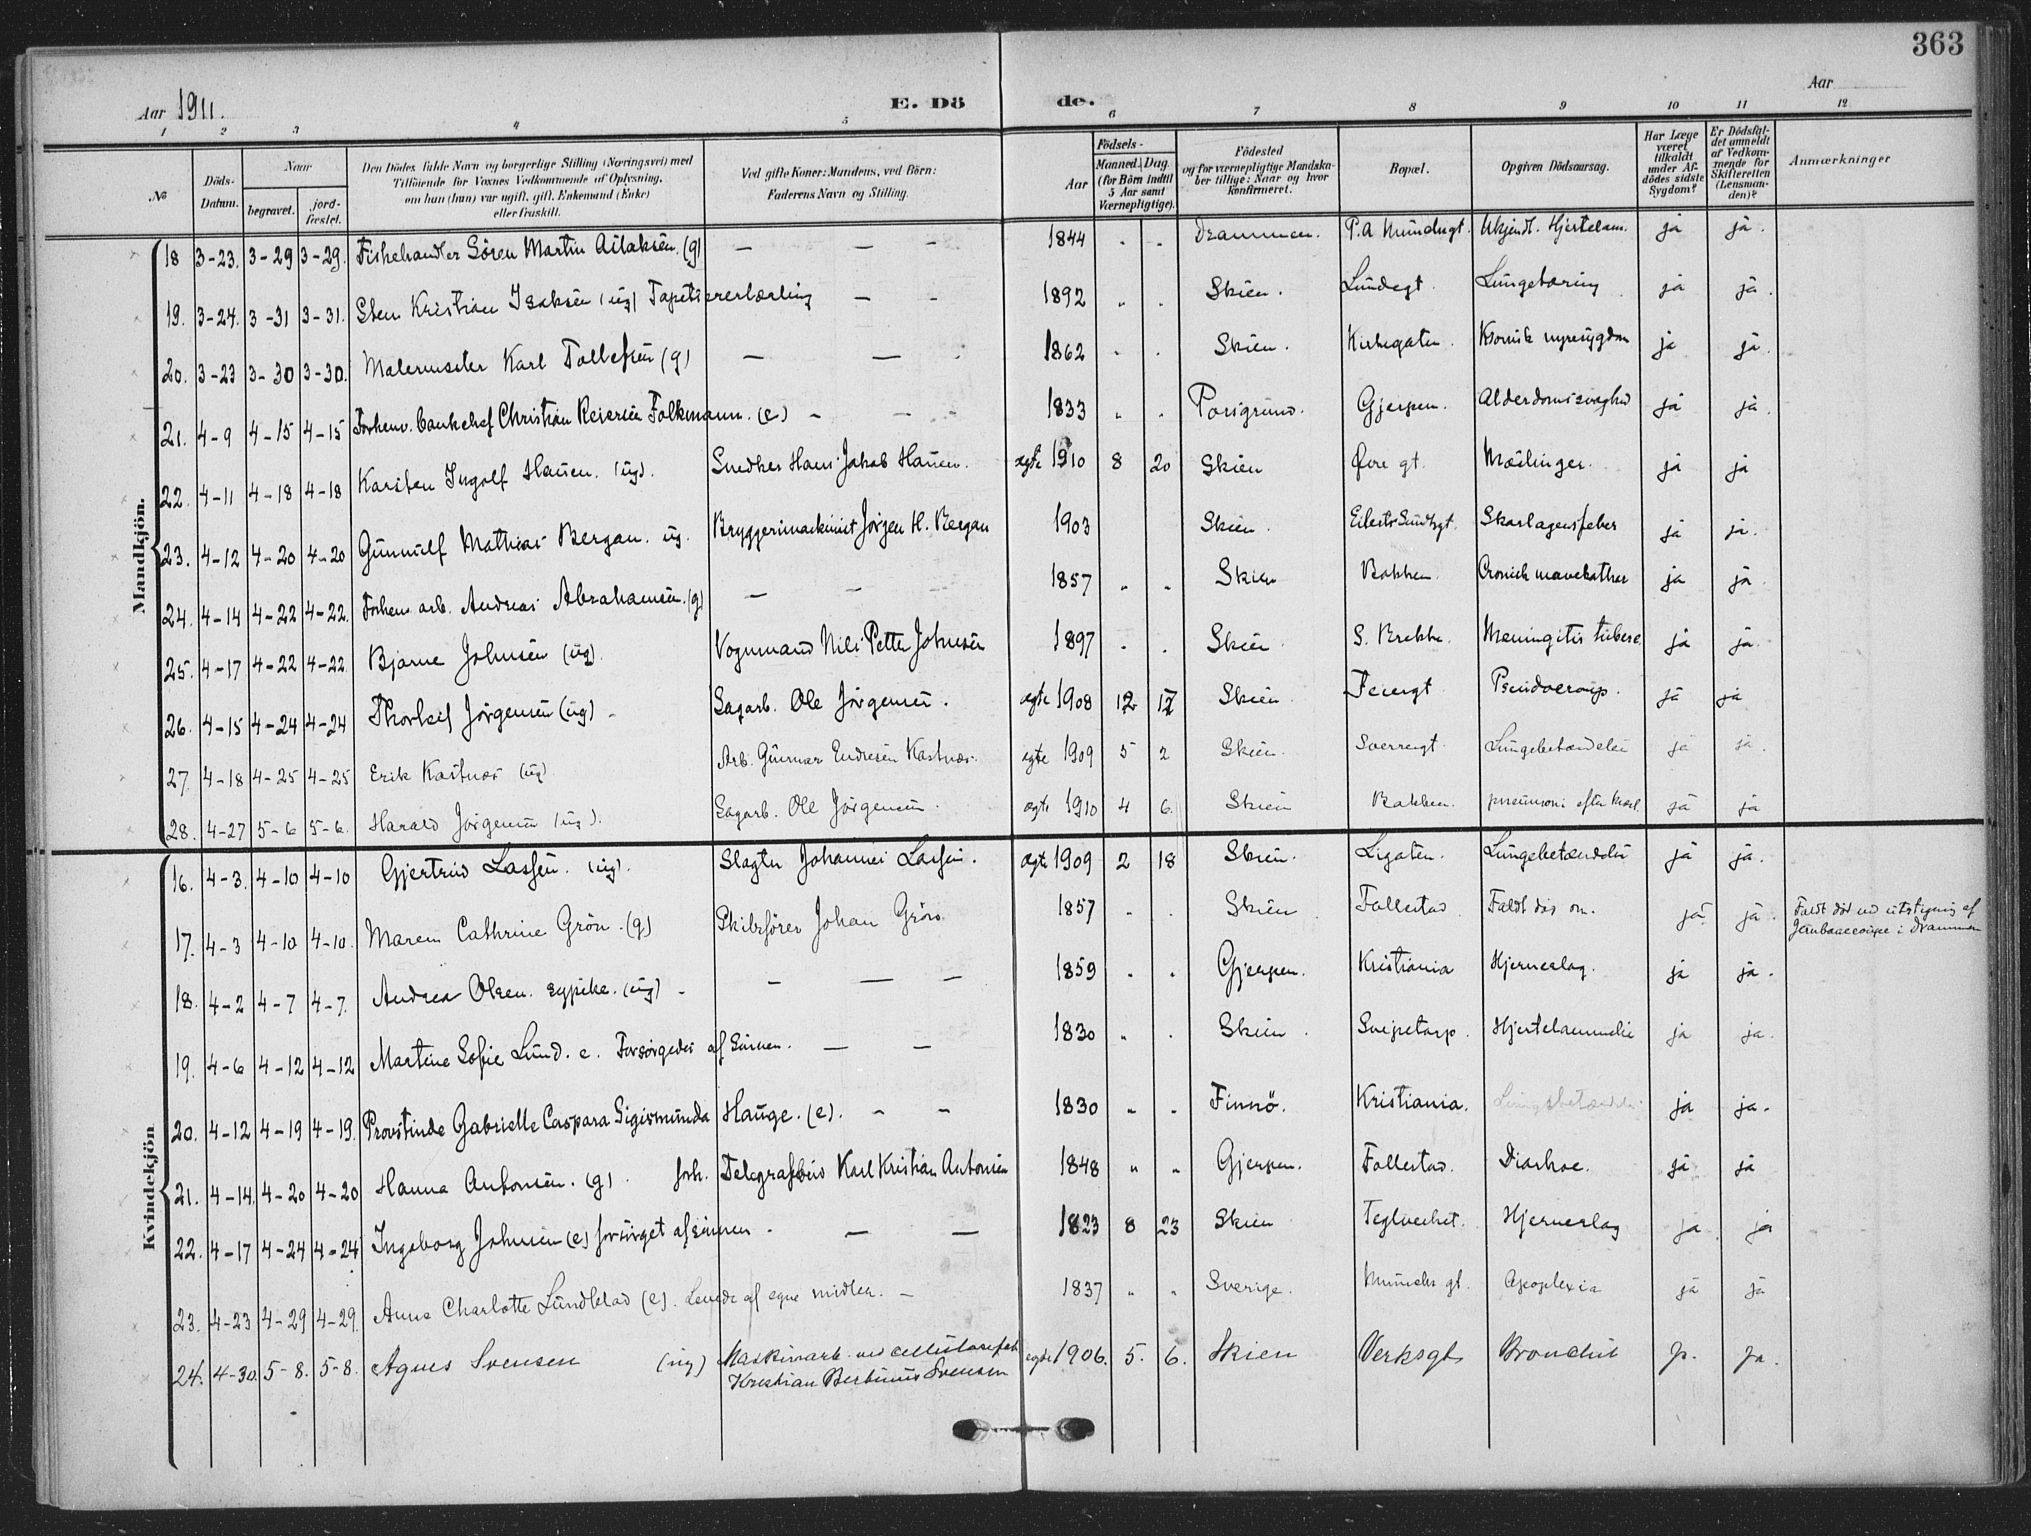 363
Aar 1911.
E. Dö
de.
Aar
1 2 3 4 5 6 7 8 9 10 11 12
No
Döds-Datum.
Naar
begravet.
jord-fæstet.
Den Dödes fulde Navn og borgerlige Stilling (Næringsvei) med Tilföiende for Voxnes Vedkommende af Oplysning, om han (hun) var ugift, gift, Enkemand (Enke) eller fraskilt.
Ved gifte Koner: Mandens, ved Börn: Faderens Navn og Stilling.
Födsels-
Aar
Maaned. Dag.
(for Börn indtil 5 Aar samt Værnepligtige).
Födested og for værnepligtige Mandskaber tillige: Naar og hvor konfirmeret.
Bopæl.
Opgiven Dödsaarsag.
Har Læge været tilkaldt under Afdödes sidste Sygdom?
Er Dödsfaldet anmeldt af Vedkommende for Skifteretten (Lensmanden)?
Anmærkninger
Mandkjön.
18 3-23. 3-29 3-29. Fiskehandler Sören Martin (g) — - - 1844 . . Drammen. P.A Munchsgt. Ukjendt. Hjertelam. ja ja.
19. 3-24. 3-31 3-31. Sten Kristian Isaksen (ug) Tapetsererlærling — - 1892 " . Skien. Lundegt. Lungetæring ja ja.
20. 3-23 3-30 3-30. Malermester Karl Tollefsen (g) — — - 1862 . . Skien. Kirkegaten. Kronisk nyresygdom ja ja.
21. 4-9 4-15 4-15 Forhenv. bankchef Christian Reiersen Folkmann. (e) - — - 1833 " . Porsgrund. Gjerpen. Alderdomssvaghed ja ja.
22. 4-11 4-18 4-18 Karsten Ingolf Hansen. (ug). Snedker Hans Jakob Hansen. ægte 1910 8 20 Skien Øvre gt. Mæslinger. ja ja
23. 4-12 4-20 4-20 Gunnulf Mathias Bergan. ug. Bryggerimaskinist Jörgen H. Bergan 1903 Skien. Eilert Sundtsgt. Skarlagensfeber ja ja.
24. 4-14 4-22 4-22. Forhenv. arb. Andreas Abrahamsen. (g) — - - 1857 " . Skien Bakken. Cronisk mavekathar ja ja.
25. 4-17 4-22 4-22. Bjarne Johnsen (ug). Vognmand Nils Petter Johnsen 1897 . . Skien. S. Brekke. Meningitis tuberc. ja ja.
26. 4-15 4-24 4-24 Thorleif Jörgensen (ug). - Sagarb. Ole Jörgensen. ægte 1908 12 17 Skien. Feiergt. Pseudocroup. ja ja
27. 4-18 4-25 4-25 Erik Kastnes (ug) Arb. Gunnar Endresen Kastnes. ægte 1909 5 2 Skien. Sverresgt. Lungebetændelse ja ja.
28. 4-27 5-6 5-6. Harald Jörgensen (ug). Sagarb. Ole Jörgensen. ægte 1910 4 6. Skien Bakken. pneumoni efter ja ja
Kvindekjön
16. 4-3. 4-10 4-10 Gjertrud Lassen. (ug). Slagter Johannes Lassen. ægte 1909 2 18 Skien. Ligaten. Lungebetændelse ja ja.
17. 4-3 4-10 4-10. Maren Cathrine Grön. (g) Skibsförer Johan Grön 1857 . . Skien Follestad. Faldt död om. ja ja. Faldt död ved utstigning af Jernbanecoupe i Drammen
18. 4-2 4-7 4-7. Andrea Olsen. sypike. (ug) - - — — 1859 . . Gjerpen. Kristiania Hjerneslag. ja ja.
19. 4-6 4-12 4-12 Martine Sofie Lund. e. Forsörgedes af Sönnen. — — 1830 . . Skien. Sneipetorp. Hjertelammelse ja ja.
20. 4-12 4-19 4-19. Provstinde Gabrielle Caspara Sigismunda Hauge. (e). - - 1830 " . Finnö. Kristiania. Lungebetændelse ja ja.
21. 4-14. 4-20 4-20 Hanna Antonsen. (g). forh. Telegrafbud Karl Kristian Antonsen 1848 " " Gjerpen. Follestad. Diarhoe. ja ja
22. 4-17 4-24 4-24 Ingeborg Johnsen (e) forsörget af sönnen - — — 1823 8 23 Skien Teglverket. Hjerneslag ja ja
23. 4-23 4-29 4-29. Anna Charlotte Lundblad (e). Levede af egne midler. - 1837 " " Sverige. Munchs gt. Apoplexia ja ja
24. 4-30. 5-8. 5-8. Agnes Svensen (ug) Maskinarb. ved cellulosefab. Kristian Svensen ægte 1906. 5. 6. Skien Verksgt. Bronchit ja. ja.